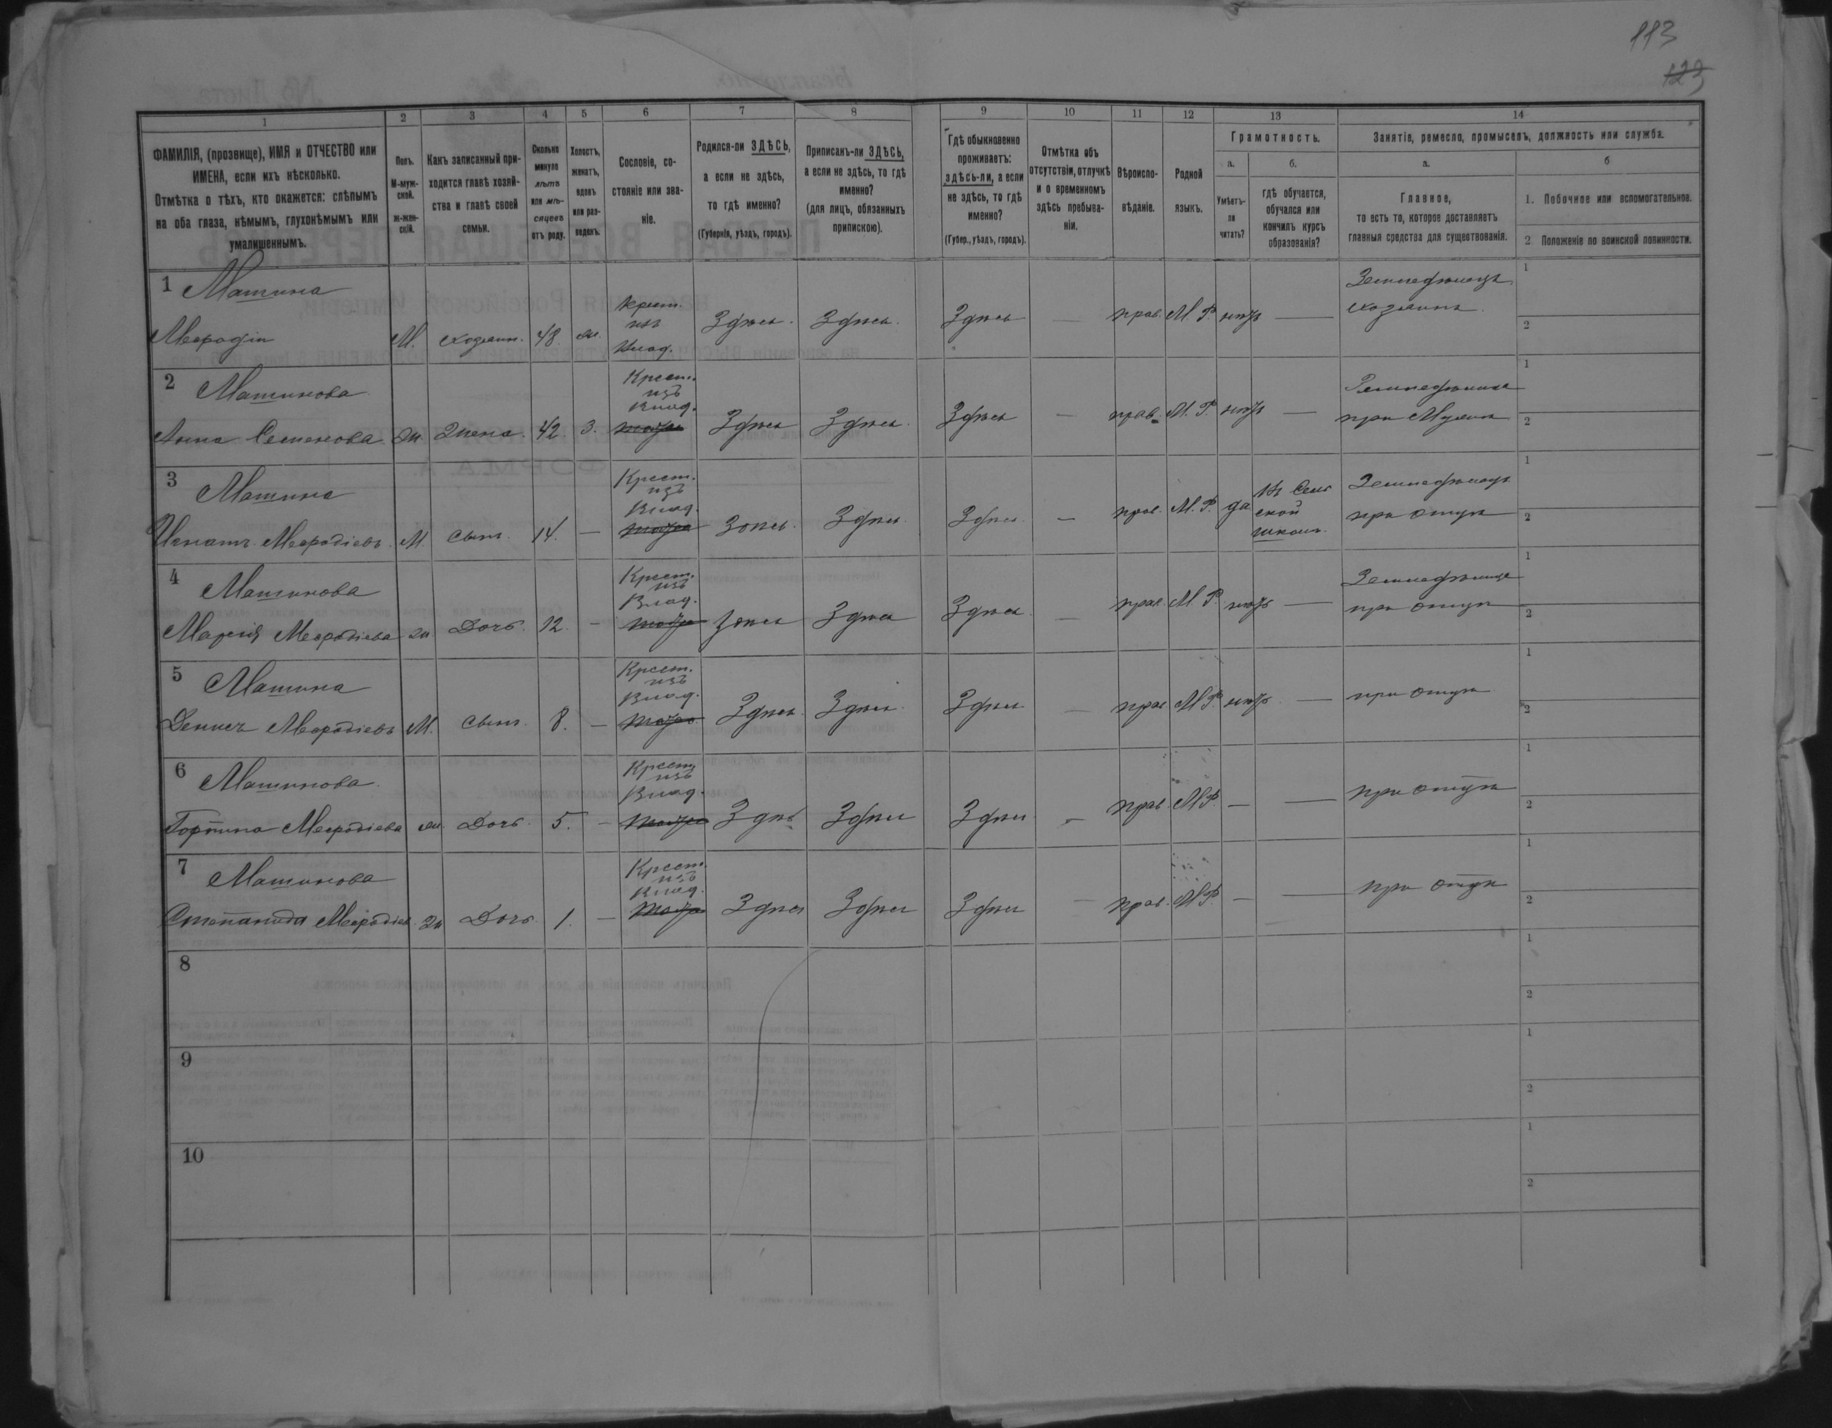 113
123
1
2
3
4
5
6
7
8
9
10
11
12
13
14
ФАМИЛІЯ, (прозвище), ИМЯ и ОТЧЕСТВО или
ИМЕНА, если ихъ нѣсколько.
Отмѣтка о тѣхъ, кто окажется: слѣпымъ
на оба глаза, нѣмымъ, глухонѣмымъ или
умалишеннымъ.
Полъ.
М-муж-
ской.
Ж-жен-
скій.
Какъ записанный при-
ходится главѣ хозяй-
ства и главѣ своей
семьи.
Сколько
минуло
лѣтъ
или мѣ-
сяцевъ
отъ роду.
Холостъ,
женатъ,
вдовъ
или раз-
веденъ.
Сословіе, со-
стояніе или зва-
ніе.
Родился-ли ЗДѢСЬ,
а если не здѣсь,
то гдѣ именно?
(Губернія, уѣздъ, городъ).
Приписанъ-ли ЗДѢСЬ,
а если не здѣсь, то гдѣ
именно?
(для лицъ, обязанныхъ
припискою).
Гдѣ обыкновенно
проживаетъ:
здѣсь-ли, а если
не здѣсь, то гдѣ
именно?
(Губер., уѣздъ, городъ).
Отмѣтка объ
отсутствіи, отлучкѣ
и о временномъ
здѣсь пребыва-
ніи.
Вѣроиспо-
вѣданіе.
Родной
языкъ.
Грамотность.
а.
Умѣетъ-
ли
читать?
б.
гдѣ обучается,
обучался или
кончилъ курсъ
образованія?
Занятія, ремесло, промыселъ, должность или служба.
а.
Главное,
то есть то, которое доставляетъ
главныя средства для существованія.
б
1. Побочное или вспомогательное.
2 Положеніе по воинской повинности.
1 Машина
Мефодій М. хозяинъ. 48. ж. Крест. изъ Влад. Здѣсь. Здѣсь. Здѣсь — прав. М. Р. нѣтъ — Земледѣлецъ хозяинъ 1 2
2 Машинова
Анна Семенова ж Жена. 42. З. Крест. изъ Влад. Здѣсь Здѣсь. Здѣсь — прав. М. Р. нѣтъ — при Мужѣ 1 2
3 Машина
Игнатъ Мефодіевъ М. сынъ. 14. — Крест. изъ Влад. Здѣсь. Здѣсь Здѣсь. — прав. М. Р. да Въ Сель ской школѣ. Земледѣлецъ при отцѣ 1 2
4 Машинова
Марѳія Мефодіева ж Дочь. 12. — Крест. изъ Влад. Здѣсь Здѣсь Здѣсь — прав. М. Р. нѣтъ — при отцѣ 1 2
5 Машина
Денисъ Мефодіевъ М. сынъ. 8. — Крест. изъ Влад. Здѣсь. Здѣсь. Здѣсь — прав. М. Р. нѣтъ — при отцѣ 1 2
6 Машинова
Горпина Мефодіева ж Дочь 5. — Крест. изъ Влад. Здѣсь Здѣсь Здѣсь — прав. М. Р. — — при отцѣ 1 2
7 Машинова
Степанида Мефодіев ж Дочь. 1. — Крест. изъ Влад. Здѣсь Здѣсь Здѣсь — прав. М. Р. — — при отцѣ 1 2
8 1 2
9 1 2
10 1 2